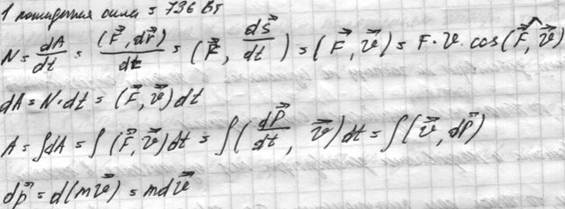 1 лошадиная сила = 736 Вт
N = dA/dt = (F⃗, dr⃗)/dt = (F⃗, ds⃗/dt) = (F⃗, v⃗) = F · v · cos(F⃗, v⃗)
dA = N · dt = (F⃗, v⃗) dt
A = ∫dA = ∫(F⃗, v⃗) dt = ∫(dP⃗/dt, v⃗) dt = ∫(v⃗, dP⃗)
dp⃗ = d(mv⃗) = mdv⃗